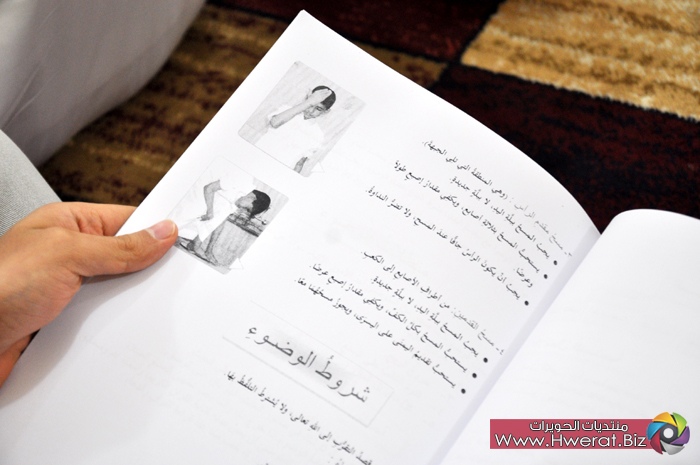 مسح مقدم الرأس: (وهي المنطقة التي تلي الجبهة).
يجب المسح ببلة اليد، لا ببلة جديدة.
يستحب المسح بثلاثة أصابع، ويكفي مقدار إصبع طولا
وعرضا.
يجب أن يكون الرأس جافا عند المسح، ولا تضر النداوة.
٤. مسح القدمين: من أطراف الأصابع إلى الكعب
يجب المسح ببلة اليد، لا ببلة جديدة.
يستحب المسح بكل الكف، ويكفي مقدار إصبع عرضا.
يستحب تقديم اليمنى على اليسرى، ويجوز مسحهما معا.
شروط الوضوء
إلى الله تعالى، ولا يشترط التلفظ بها.
منتديات الحويرات
Www.Hwerat.Biz